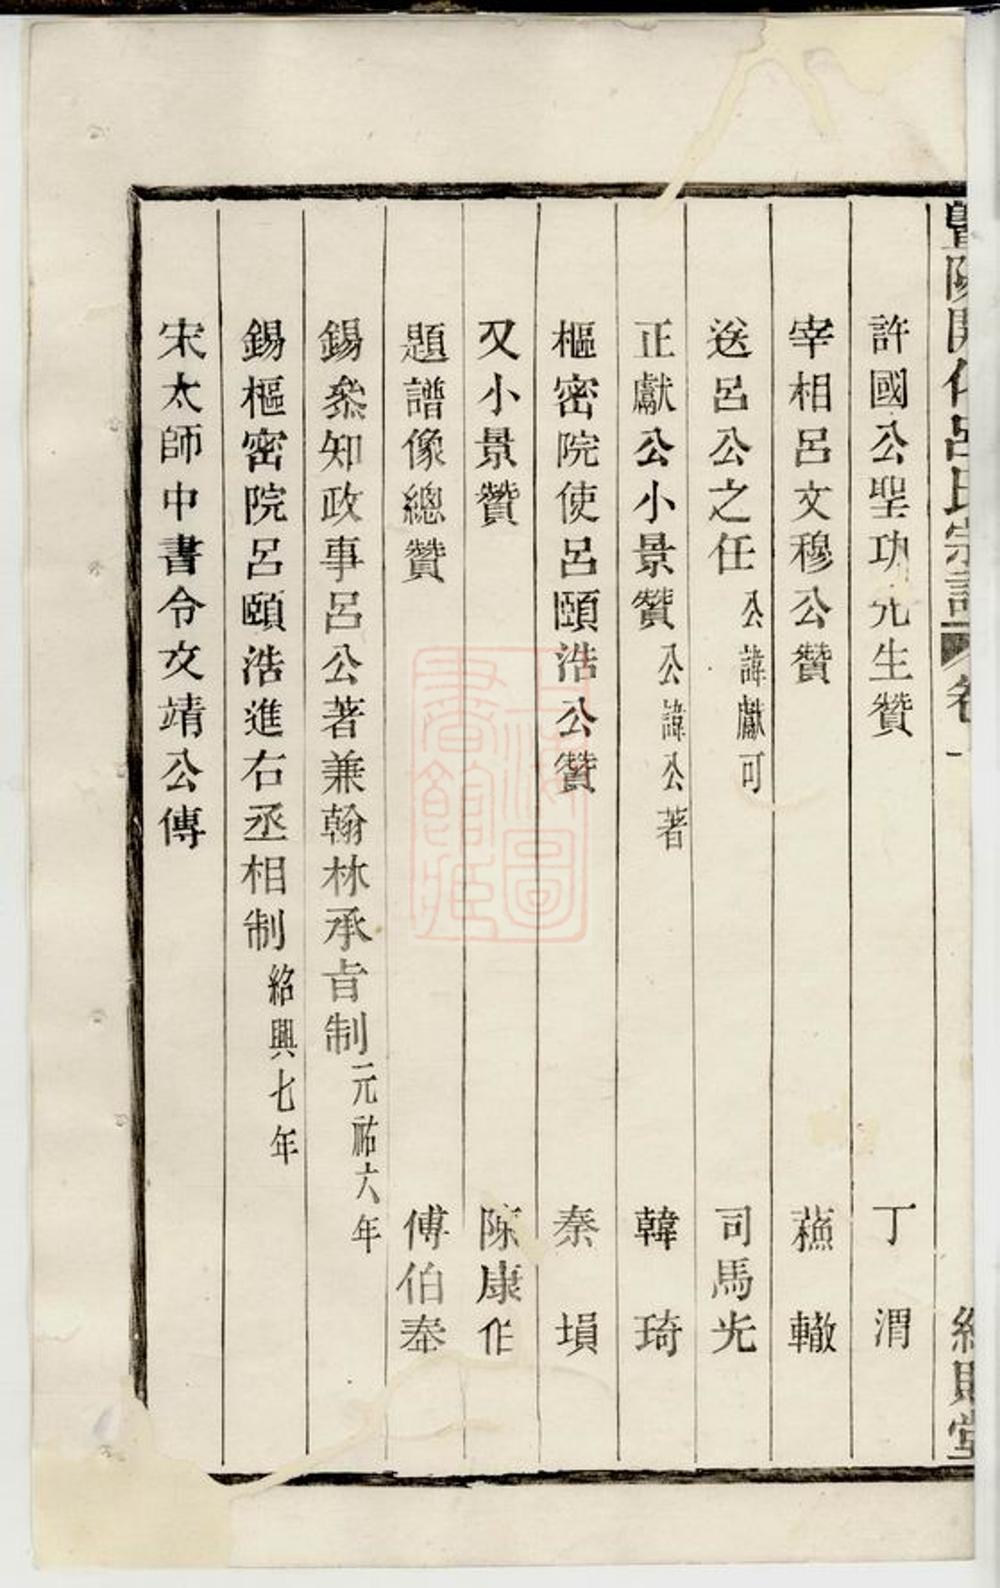 暨陽開化呂氏宗譜 卷一
許國公聖功先生贊 丁謂
宰相呂文穆公贊 蘓轍
送呂公之任 公諱獻可 司馬光
正獻公小景贊 公諱公著 韓琦
樞密院使呂頤浩公贊 秦塤
又小景贊 陳康伯
題譜像總贊 傅伯奉
錫叅知政事呂公著兼翰林承㫖制 元祐六年
錫樞密院呂頤浩進右丞相制 紹興七年
宋太師中書令文靖公傳
上海圖書館藏